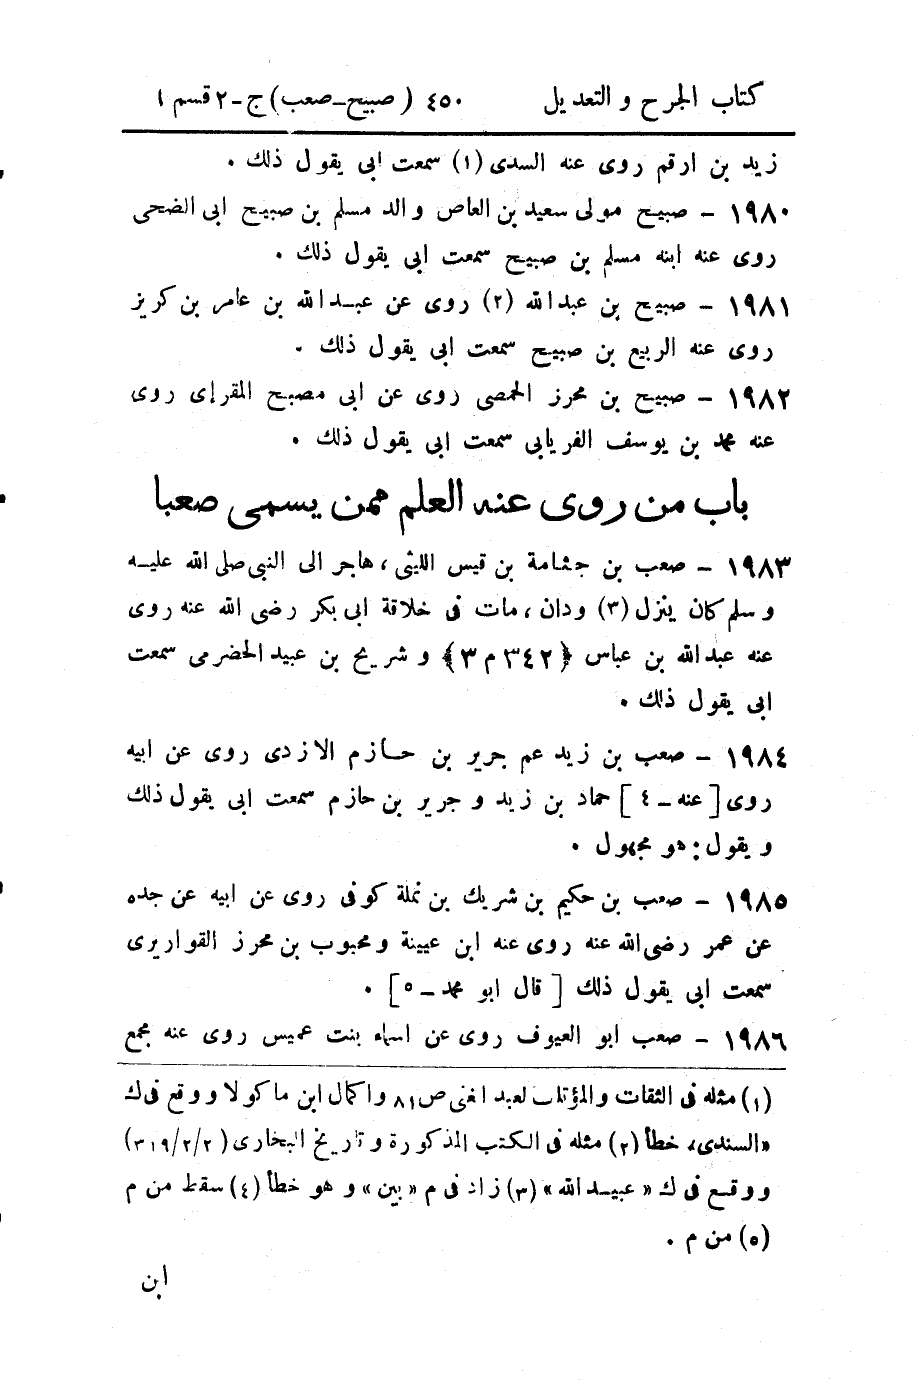 كتاب الجرح و التعديل ٤٥٠ ( صبيح-صعب) ج-٢ قسم ١
زيد بن ارقم روى عنه السدى (١) سمعت ابى يقول ذلك .
١٩٨٠ - صبيح مولى سعيد بن العاص والد مسلم بن صبيح ابى الضحى
روى عنه ابنه مسلم بن صبيح سمعت ابى يقول ذلك .
١٩٨١ - صبيح بن عبد الله (٢) روى عن عبد الله بن عامر بن كريز
روى عنه الربيع بن صبيح سمعت ابى يقول ذلك .
١٩٨٢ - صبيح بن محرز الحمصى روى عن ابى مصبح المقرإى روى
عنه محمد بن يوسف الفريابى سمعت ابى يقول ذلك .
باب من روى عنه العلم ممن يسمى صعبا
١٩٨٣ - صعب بن جثامة بن قيس الليثى ، هاجر الى النبى صلى الله عليه
وسلم كان ينزل (٣) ودان ، مات فى خلاقة ابى بكر رضى الله عنه روى
عنه عبد الله بن عباس ﴿٣٤٢ م ٣﴾ و شريح بن عبيد الحضرمى سمعت
ابى يقول ذلك .
١٩٨٤ - صعب بن زيد عم جرير بن حازم الازدى روى عن ابيه
روى [عنه - ٤] حماد بن زيد و جرير بن حازم سمعت ابى يقول ذلك
و يقول : هو مجهول .
١٩٨٥ - صعب بن حكيم بن شريك بن نملة كوفى روى عن ابيه عن جده
عن عمر رضى الله عنه روى عنه ابن عيينة ومحبوب بن محرز القواريرى
سمعت ابى يقول ذلك [ قال ابو محمد - ٥] .
١٩٨٦ - صعب ابو العيوف روى عن اسماء بنت عميس روى عنه مجمع
(١) مثله فى الثقات والمؤتلف لعبد الغنى ص ٨١ واكمال ابن ماكولا ووقع فى ك
«السندى» خطأ (٢) مثله فى الكتب المذكورة و تاريخ البخارى (٣١٩/٢/٢)
ووقع فى ك « عبيد الله » (٣) زاد فى م « بين » و هو خطأ (٤) سقط من م
(٥) من م .
ابن